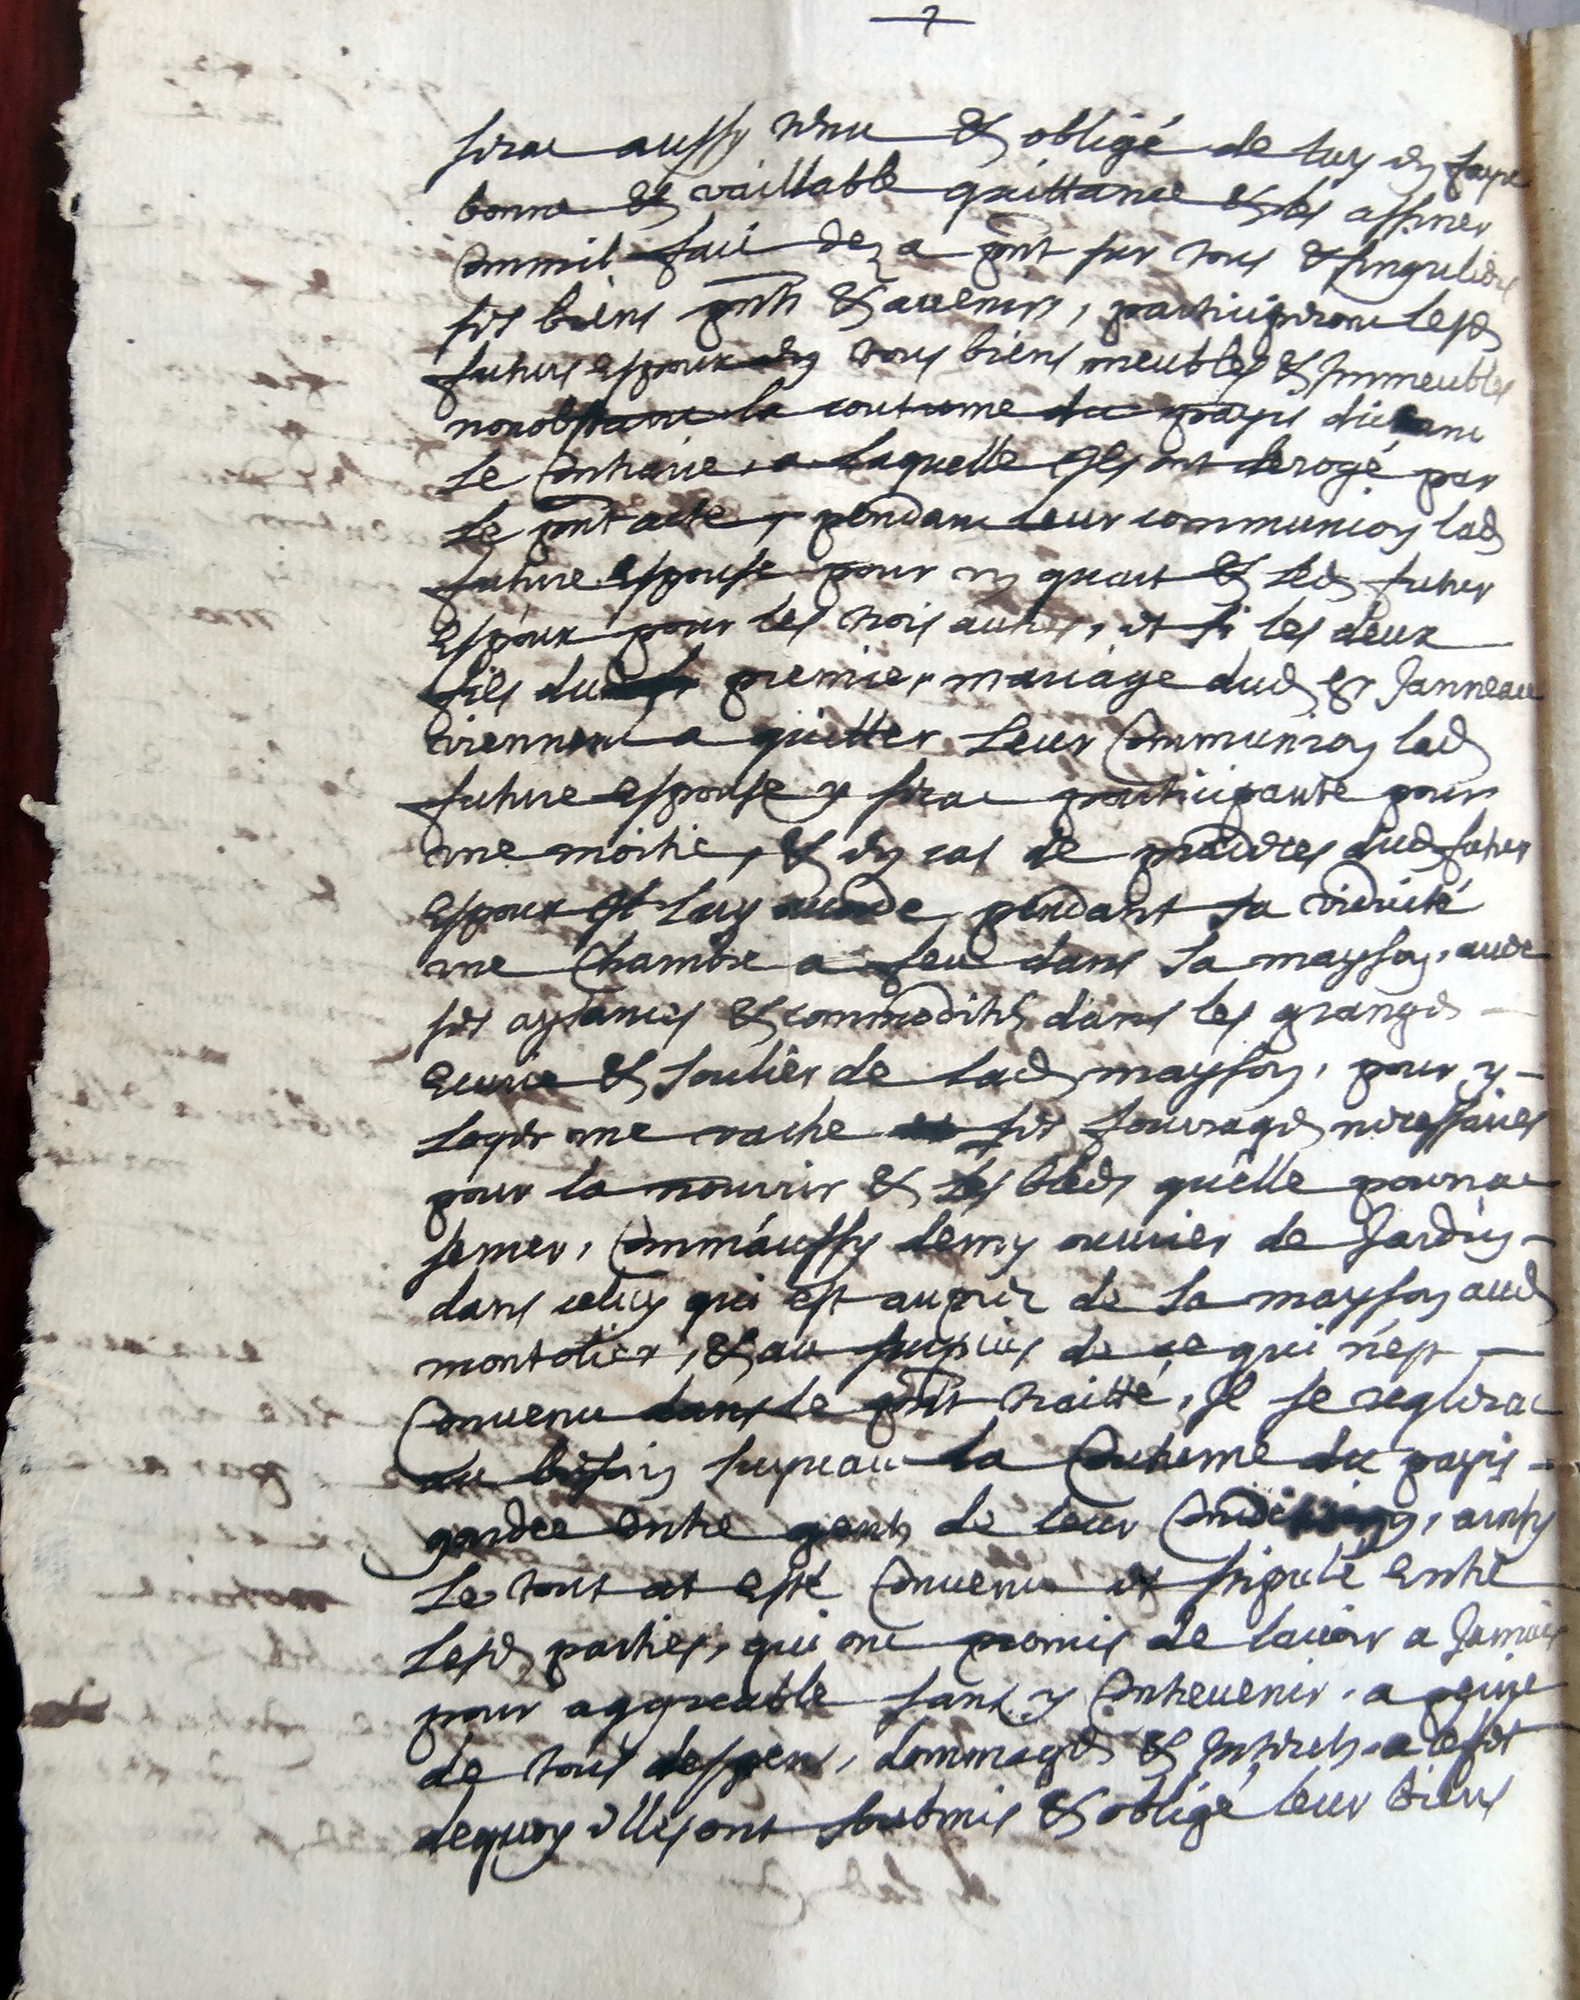 serat aussy tenu & obligé de luy en faire
bonne & vaillable quittance & les assiner
comm'il fait dez a pnt sur tous & singuliers
ses biens pnts & avenirs, participeront lesd
futurs espoux en tous biens meubles & Immeubles
nonobstant la coutume du payis disant
le contraire, a laquelle Ils ont derogé par
le pnt acte, pendant leur communion lad
future espouse pour un quart & led futur
espoux pour les trois autres, et si les deux
fils dud premier mariage dud Sr Janneau
viennent a quitter leur communion lad
future espouse y serat participante pour
une moitié, & en cas de predeces dud futur
espoux Il luy pendant sa viduité
une chambre a feu dans sa mayson, avec
ses aysances & commodités dans les granges
ecurie & soulier de lad mayson, pour y
loger une vache ses fourrages necessaires
pour la nourrir & les bleds qu'elle pourrat
semer, comm'aussy demy ouvrier de Jardin
dans celuy qui est aupres de sa mayson aud
montolier, & au surplus de ce qui n'est
convenu dans le pnt traitté, Il se reglerat
au besoin suyvant la coutume du payis
gardee entre gents de leur condition, ainsy
le tout at esté convenu et stipulé entre
lesd parties, qui ont promis de l'avoir a Jamais
pour aggreable sans y contrevenir, a peine
de tous despens, dommages & Interets, a l'effet
dequoy elles ont soubmis & obligé leur biens